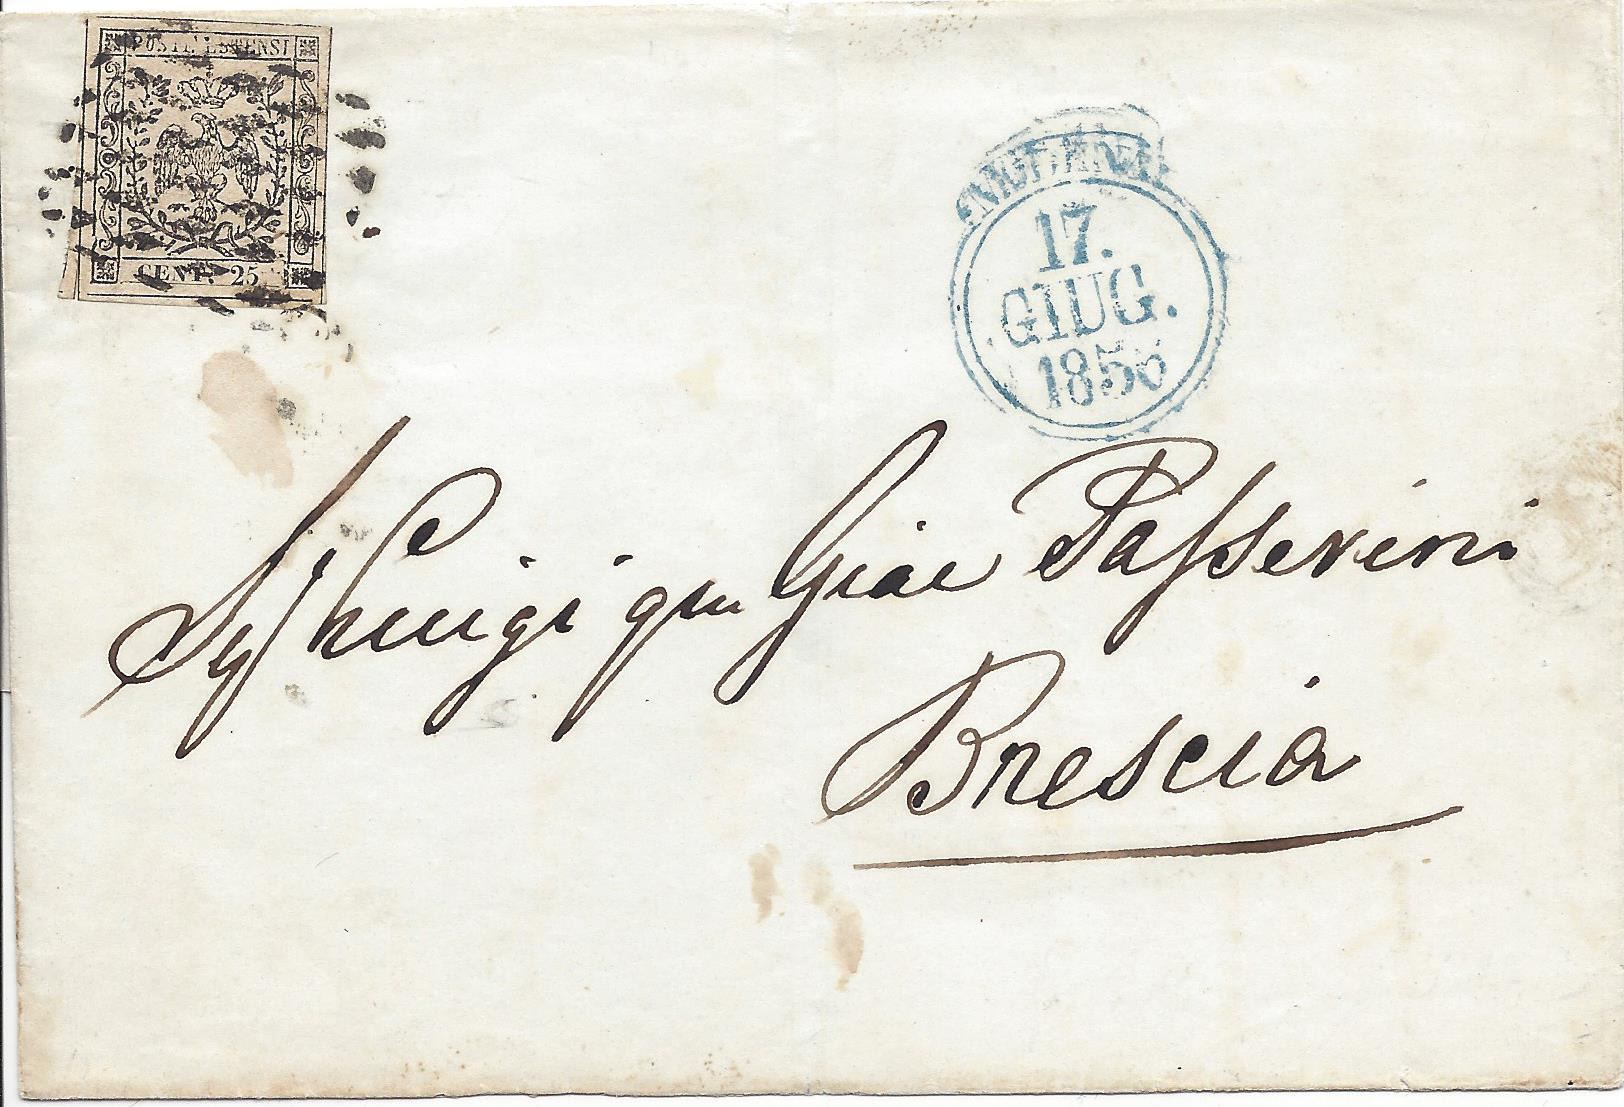 POSTE ESTENSI
CENT. 25
MODENA
17.
GIUG.
1856
Sg Luigi qm Giac Passerini
Brescia